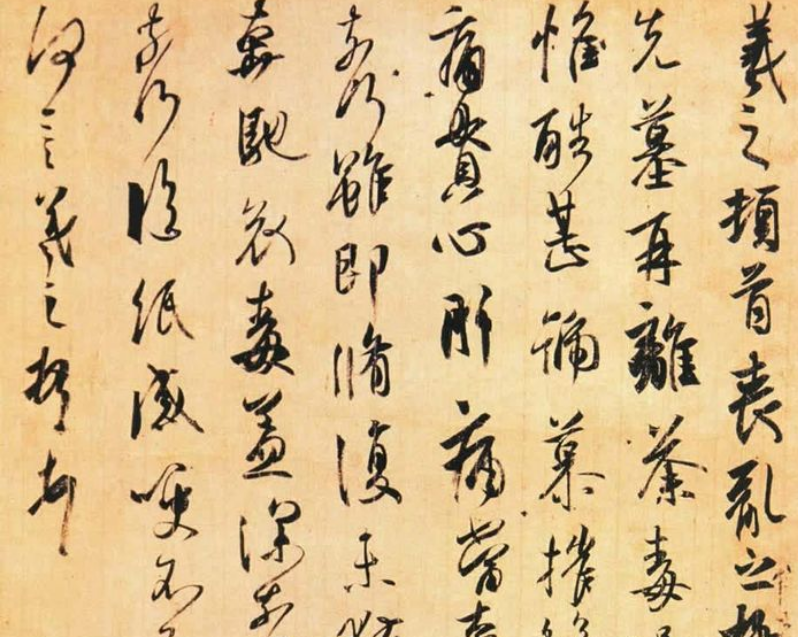 羲之頓首喪亂之極
先墓再離荼毒追
惟酷甚號慕摧絕
痛貫心肝痛當奈
奈何雖即脩復未獲
奔馳哀毒益深奈
奈何臨紙感哽不知
何言羲之頓首